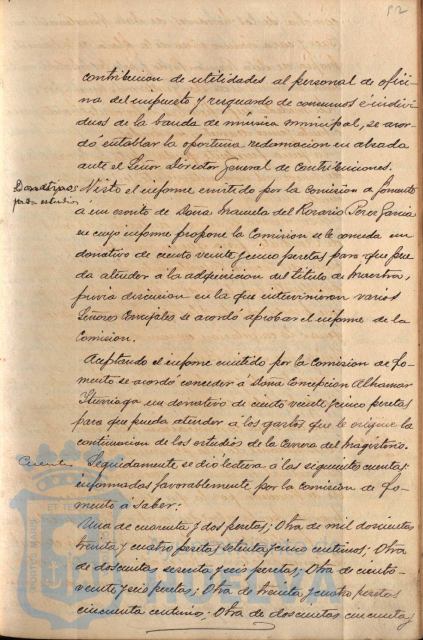 52
contribucion de utilidades al personal de ofici-
na del impuesto y resguardo de consumos é indivi-
duos de la banda de música municipal, se acor-
dó entablar la oportuna reclamacion en alzada
ante el Señor Director General de Contribuciones.
Donativos
para estudios
Visto el informe emitido por la Comision de Fomento
á un escrito de Doña Manuela del Rosario Perez Garcia
en cuyo informe propone la Comision se le conceda un
donativo de ciento veinte y cinco pesetas para que pue-
da atender á la adquisicion del titulo de Maestra,
previa discusion en la que intervinieron varios
Señores Concejales se acordó aprobar el informe de la
Comision.
Aceptando el informe emitido por la Comision de Fo-
mento se acordó conceder á Doña Concepcion Alhamar
Iturriaga un donativo de ciento veinte y cinco pesetas
para que pueda atender á los gastos que le origine la
continuacion de los estudios de la Carrera del Magisterio.
Cuentas
Seguidamente se dió lectura á las siguientes cuentas
informadas favorablemente por la Comision de Fo-
mento á saber:
Una de cuarenta y dos pesetas; Otra de mil doscientas
treinta y cuatro pesetas setenta y cinco centimos; Otra
de doscientas sesenta y seis pesetas; Otra de ciento
veinte y seis pesetas; Otra de treinta y cuatro pesetas
cincuenta centimos; Otra de doscientas cincuenta y